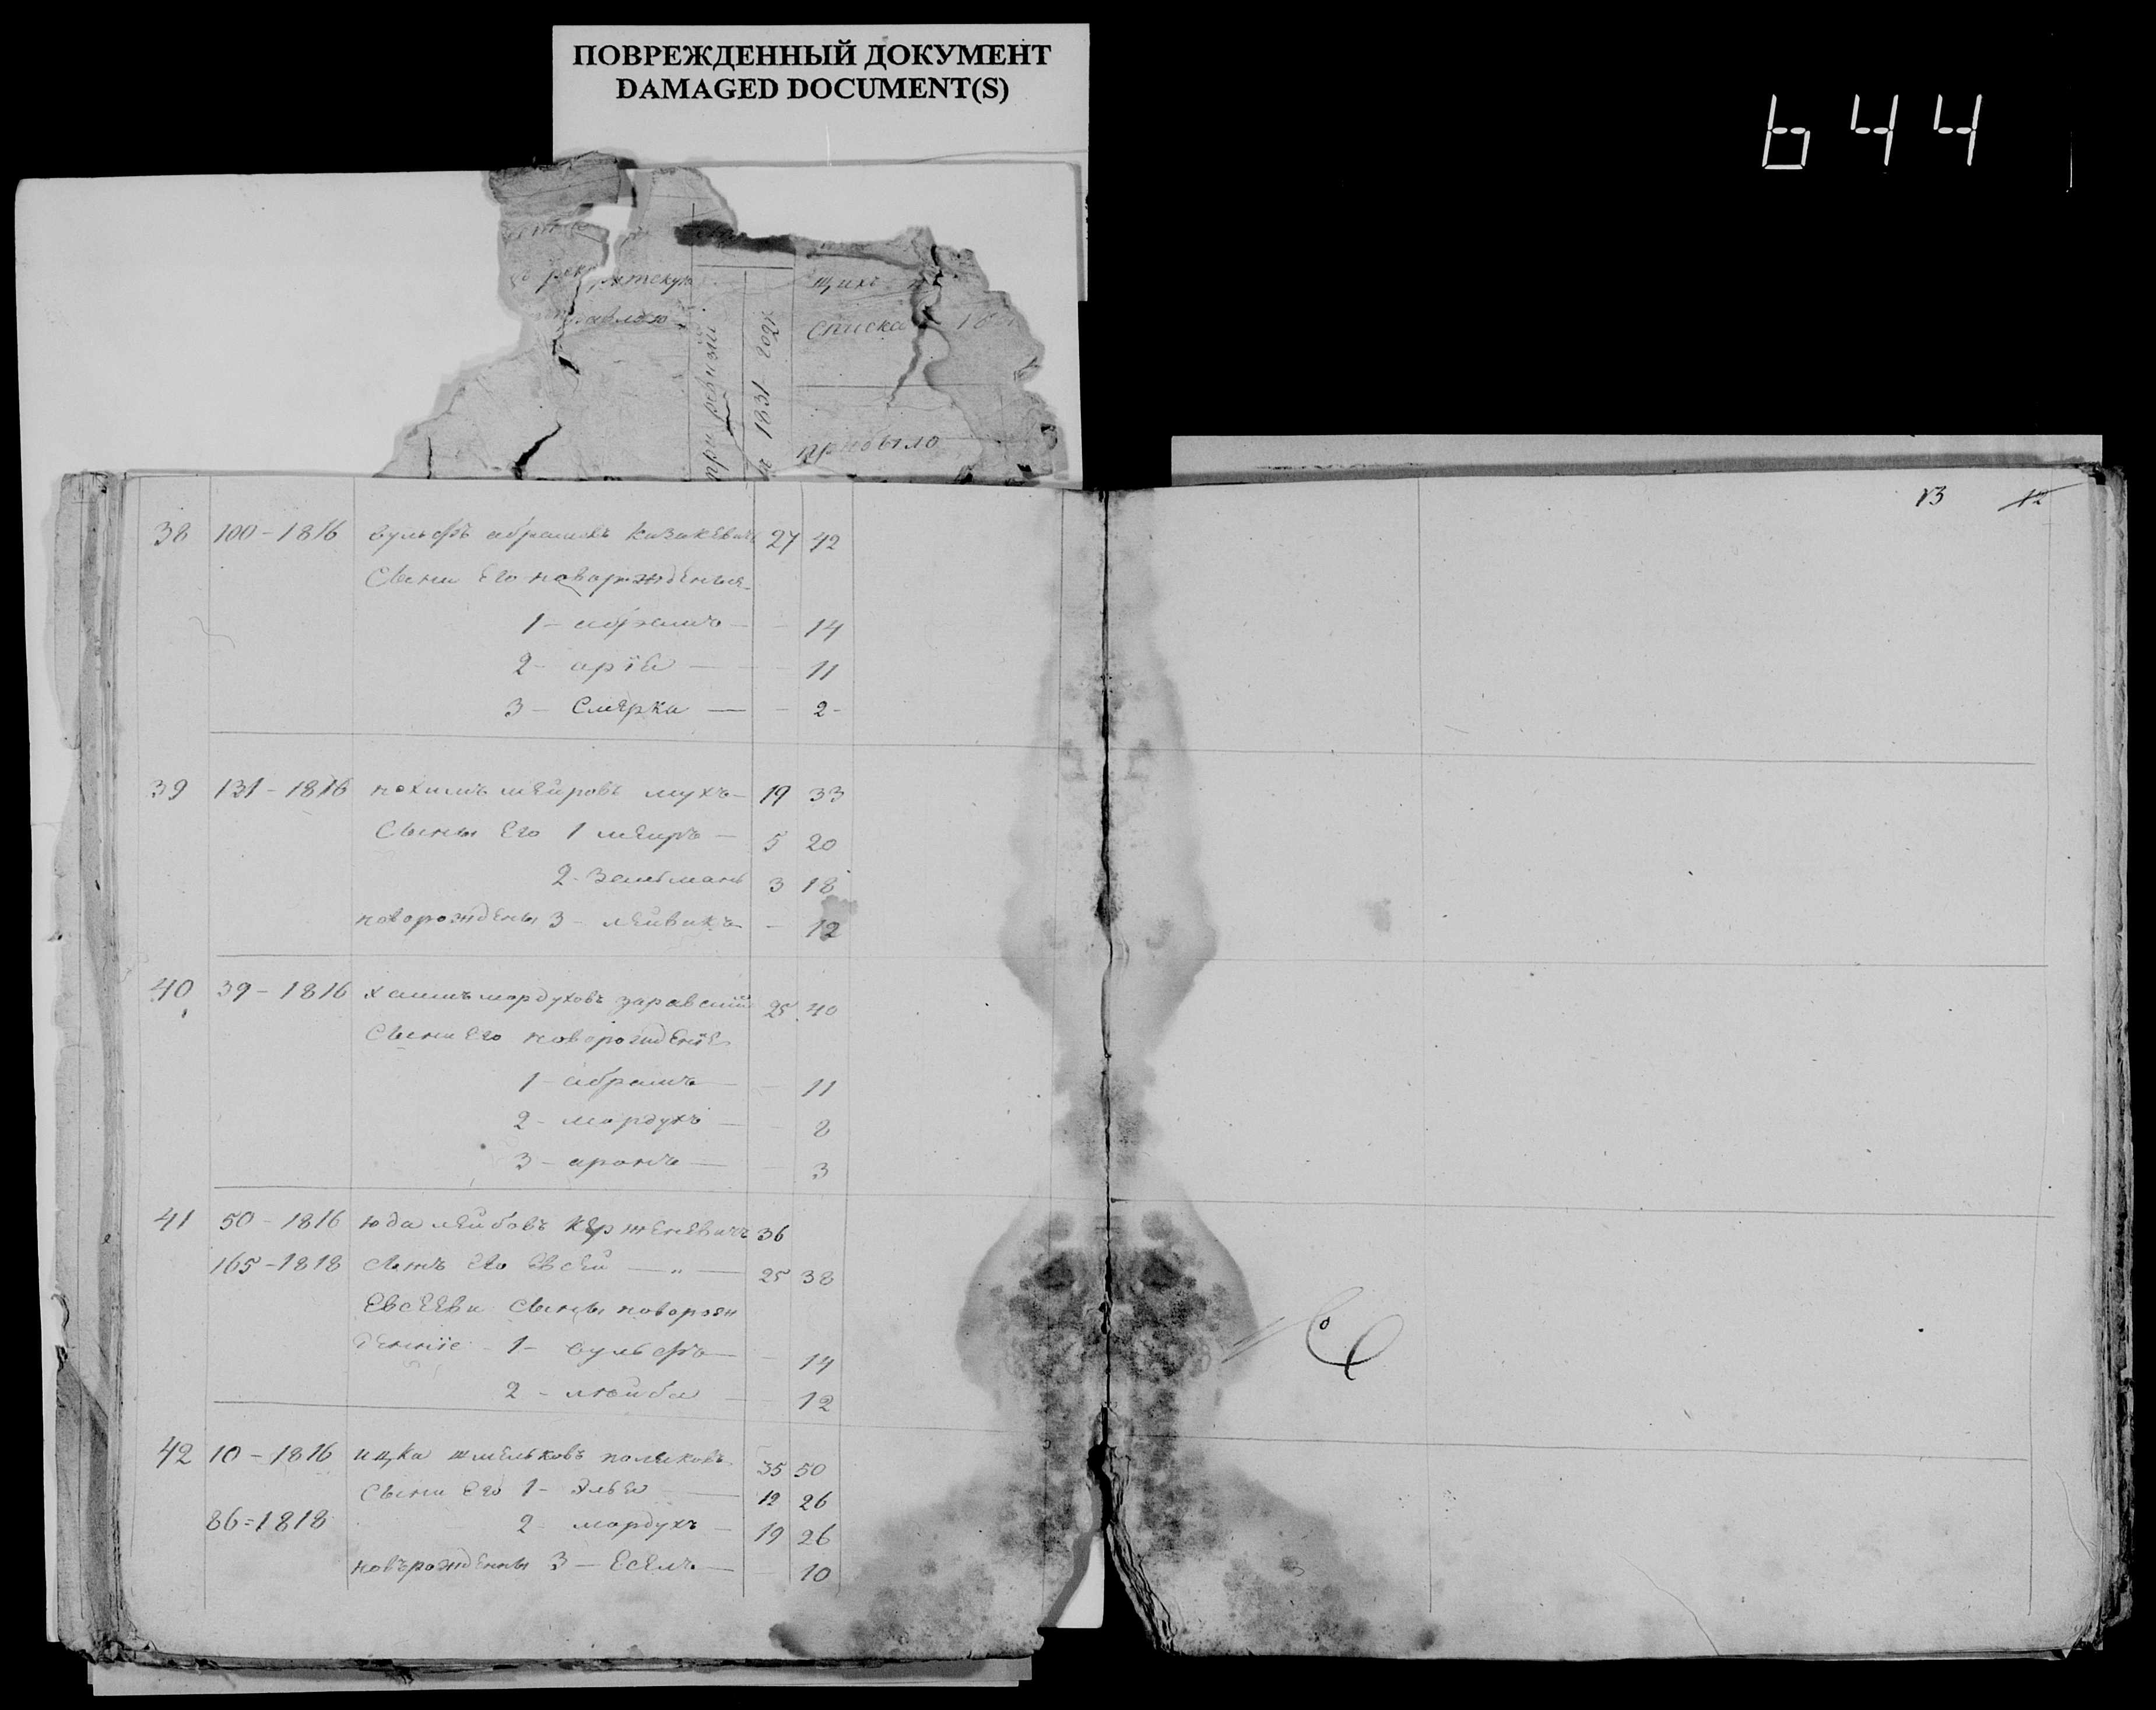 ПОВРЕЖДЕННЫЙ ДОКУМЕНТ
DAMAGED DOCUMENT(S)
644
щихъ
списка
при ревизіи
1831 году
прибыло
13 12
38 100-1816 вульфъ абрамовъ Казакевичъ 27 42
Сыни Его новорожденыя
1- абрамъ - 14
2- аріа - 11
3- Смерка - 2-
39 131-1816 нохимъ мейровъ мухъ 19 33
Сыны Его 1 меиръ 5 20
2- Зельманъ 3 18
новорождены 3- лейвикъ - 12
40 39-1816 хаимъ мордуховъ 25 40
Сыни Его новорожденіе
1- абрамъ - 11
2- мордухъ - 8
3- аронъ - 3
41 50-1816 юда лейбовъ 36
165-1818 сынъ Его Евсей — „ — 25 38
Евсееви Сыны новорож
деніе - 1- вульфъ - 14
2- лейба - 12
42 10-1816 ицка шмельковъ поляковъ 35 50
Сыни Его 1- Элья 12 26
86=1818 2 мордухъ 19 26
новърожденны 3- Еселъ - 10